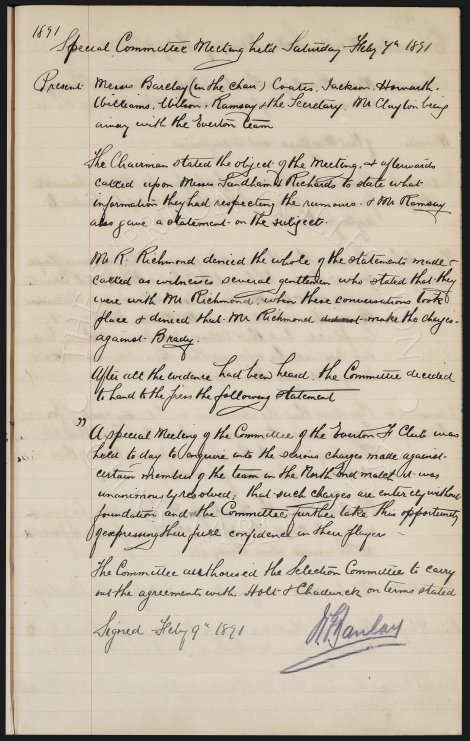 1891
Special Committee Meeting held Saturday Feby 7th 1891
Present Messrs Barclay (in the chair) Coates, Jackson, Howarth.
Williams, Wilson, Ramsay & the Secretary, Mr Clayton being
away with the Everton team
The Chairman stated the object of the Meeting, & afterwards
called upon Messrs Sandham & Richards to state what
information they had respecting the rumours & Mr Ramsay
also gave a statement on the subject.
Mr R. Richmond denied the whole of the statements made &
called as witnesses several gentlemen who stated that they
were with Mr Richmond, when these conversations took
place & denied that Mr Richmond did not make the charges
against Brady.
After all the evidence had been heard, the Committee decided
to hand to the press the following statement
" A special Meeting of the Committee of the Everton F Club was
held to day to enquire into the serious charges made against
certain members of the team in the North End match, it was
unanimously resolved, that such charges are entirely without
foundation and the Committee further take this opportunity
of expressing their full confidence in their players —
The Committee authorised the Selection Committee to carry
out the agreements with Holt & Chadwick on terms stated
Signed Feby 9th 1891